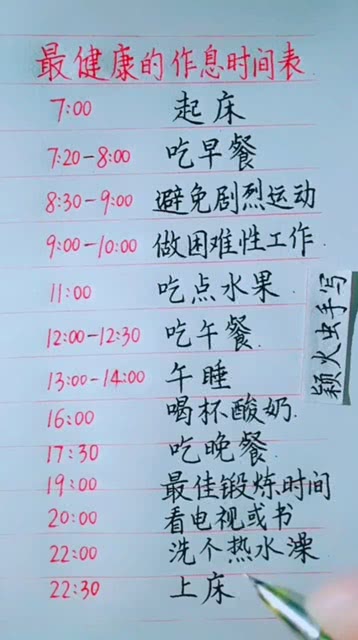 最健康的作息时间表
7:00 起床
7:20-8:00 吃早餐
8:30-9:00 避免剧烈运动
9:00-10:00 做困难性工作.
11:00 吃点水果
12:00-12:30 吃午餐
13:00-14:00 午睡
16:00 喝杯酸奶.
17:30 吃晚餐
19:00 最佳锻炼时间
20:00 看电视或书
22:00 洗个热水澡
22:30 上床
颖火虫手写